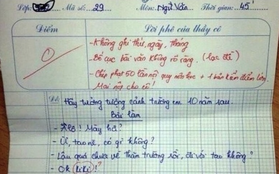 Lớp: Mã số: 29 Môn: Ngữ Văn Thời gian: 45'
Điểm Lời phê của thầy cô
- Không ghi thứ, ngày, tháng
- Bố cục bài văn không rõ ràng. (lạc đề)
- Chép phạt 50 lần nội quy + 1 bản kiểm điểm
Mai nộp cho cô!
Hãy tưởng tượng cảnh trường em 10 năm sau.
Bài làm
- Alo! Mày hả?
- Ừ, tao nè, có gì không?
- Lâu quá chưa về thăm trường rồi, đi với tao không?
- Ok